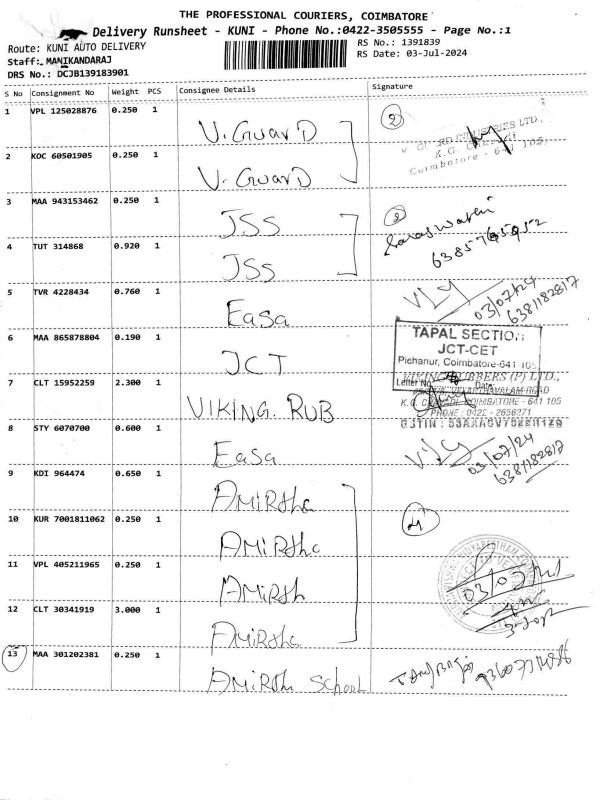 THE PROFESSIONAL COURIERS, COIMBATORE
Delivery Runsheet - KUNI - Phone No.:0422-3505555 - Page No.:1
Route: KUNI AUTO DELIVERY
RS No.: 1391839
Staff: MANIKANDARAJ
RS Date: 03-Jul-2024
DRS No.: DCJB139183901
S No Consignment No Weight PCS Consignee Details Signature
1 VPL 125028876 0.250 1 V. GuarD ②
2 KOC 60501905 0.250 1 V. GuarD
K.G.
Coimbatore - 641 105.
3 MAA 943153462 0.250 1 JSS ② Saraswathi
4 TUT 314868 0.920 1 JSS
5 TVR 4228434 0.760 1 Easa
03/07/24
6381182817
6 MAA 865878804 0.190 1 JCT
TAPAL SECTION
JCT-CET
Pichanur, Coimbatore-641 105
Letter No Date
7 CLT 15952259 2.300 1 VIKING. RUB
VIKING RUBBERS (P) LTD.,
COIMBATORE - 641 105
PHONE : 0422 - 2656371
8 STY 6070700 0.600 1 Easa
03/07/24
6381182817
9 KDI 964474 0.650 1 AMIRtha
10 KUR 7001811062 0.250 1 AMIRtha ④
11 VPL 405211965 0.250 1 AMIRth
12 CLT 30341919 3.000 1 AMIRtha
13 MAA 301202381 0.250 1 AMIRth School